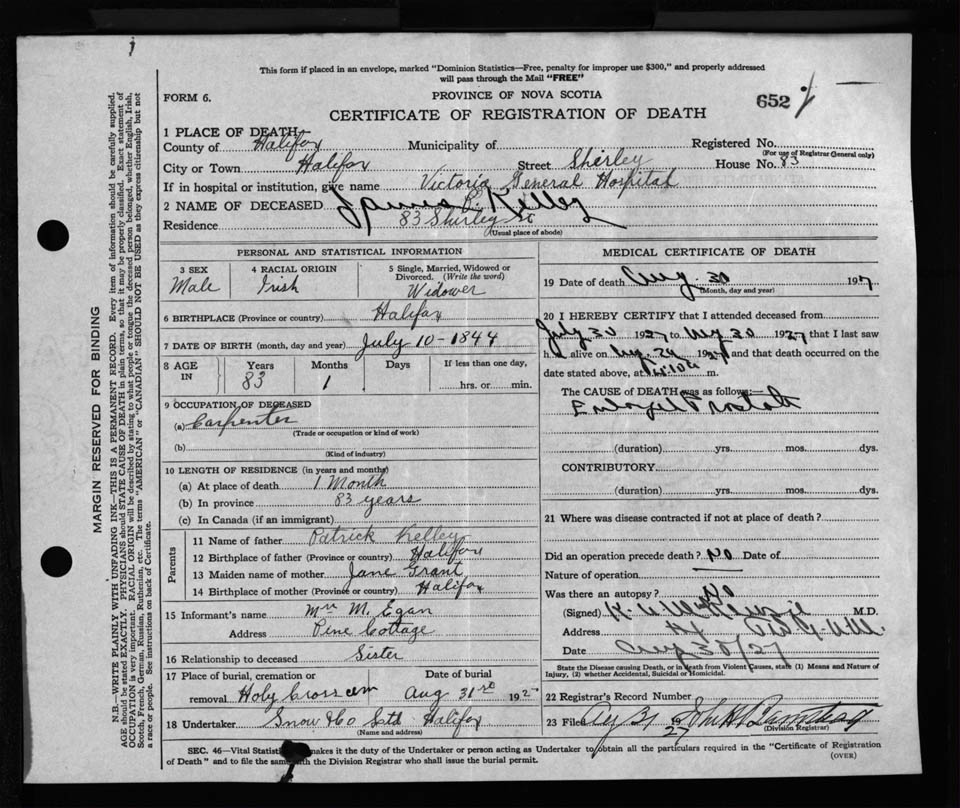 This form if placed in an envelope, marked "Dominion Statistics—Free, penalty for improper use $300," and properly addressed
will pass through the Mail "FREE"
FORM 6.
PROVINCE OF NOVA SCOTIA
652
CERTIFICATE OF REGISTRATION OF DEATH
1 PLACE OF DEATH—
County of Halifax Municipality of Registered No.
(For use of Registrar General only)
City or Town Halifax Street Shirley House No. 83
If in hospital or institution, give name Victoria General Hospital
2 NAME OF DECEASED James Kelley
Residence 83 Shirley St
(Usual place of abode)
PERSONAL AND STATISTICAL INFORMATION
3 SEX
Male
4 RACIAL ORIGIN
Irish
5 Single, Married, Widowed or
Divorced. (Write the word)
Widower
6 BIRTHPLACE (Province or country) Halifax
7 DATE OF BIRTH (month, day and year) July 10 - 1844
8 AGE IN
Years
83
Months
1
Days
If less than one day,
hrs. or min.
9 OCCUPATION OF DECEASED
(a) Carpenter
(Trade or occupation or kind of work)
(b)
(Kind of industry)
10 LENGTH OF RESIDENCE (in years and months)
(a) At place of death 1 Month
(b) In province 83 years
(c) In Canada (if an immigrant)
Parents
11 Name of father Patrick Kelley
12 Birthplace of father (Province or country) Halifax
13 Maiden name of mother Jane Grant
14 Birthplace of mother (Province or country) Halifax
15 Informant's name Mrs M. Egan
Address Pine Cottage
16 Relationship to deceased Sister
17 Place of burial, cremation or
removal Holy Cross cem
Date of burial
Aug 31st 1927
18 Undertaker Snow & Co Ltd Halifax
(Name and address)
MEDICAL CERTIFICATE OF DEATH
19 Date of death Aug. 30 1927
(Month, day and year)
20 I HEREBY CERTIFY that I attended deceased from
July 30 1927 to Aug 30 1927 that I last saw
h alive on Aug. 29 1927 and that death occurred on the
date stated above, at m.
The CAUSE of DEATH was as follows:—
Enlarged Prostate
(duration) yrs. mos. dys.
CONTRIBUTORY
(duration) yrs. mos. dys.
21 Where was disease contracted if not at place of death?
Did an operation precede death? No Date of
Nature of operation
Was there an autopsy? No
(Signed) M.D.
Address
Date Aug 30/27
State the Disease causing Death, or in death from Violent Causes, state (1) Means and Nature of
Injury, (2) whether Accidental, Suicidal or Homicidal.
22 Registrar's Record Number
23 Filed Aug 31 1927
(Division Registrar)
SEC. 46—Vital Statist makes it the duty of the Undertaker or person acting as Undertaker to obtain all the particulars required in the "Certificate of Registration
of Death" and to file the same with the Division Registrar who shall issue the burial permit.
(OVER)
MARGIN RESERVED FOR BINDING
N.B.—WRITE PLAINLY WITH UNFADING INK—THIS IS A PERMANENT RECORD. Every item of information should be carefully supplied.
AGE should be stated EXACTLY. PHYSICIANS should STATE CAUSE OF DEATH in plain terms, so that it may be properly classified. Exact statement of
OCCUPATION is very important. RACIAL ORIGIN will be described by stating to what people or tongue the deceased person belonged, whether English, Irish,
Scotch, French, German, Russian, Ruthenian, etc. The terms "AMERICAN" or "CANADIAN" SHOULD NOT BE USED as they express citizenship but not
a race or people. See instructions on back of Certificate.